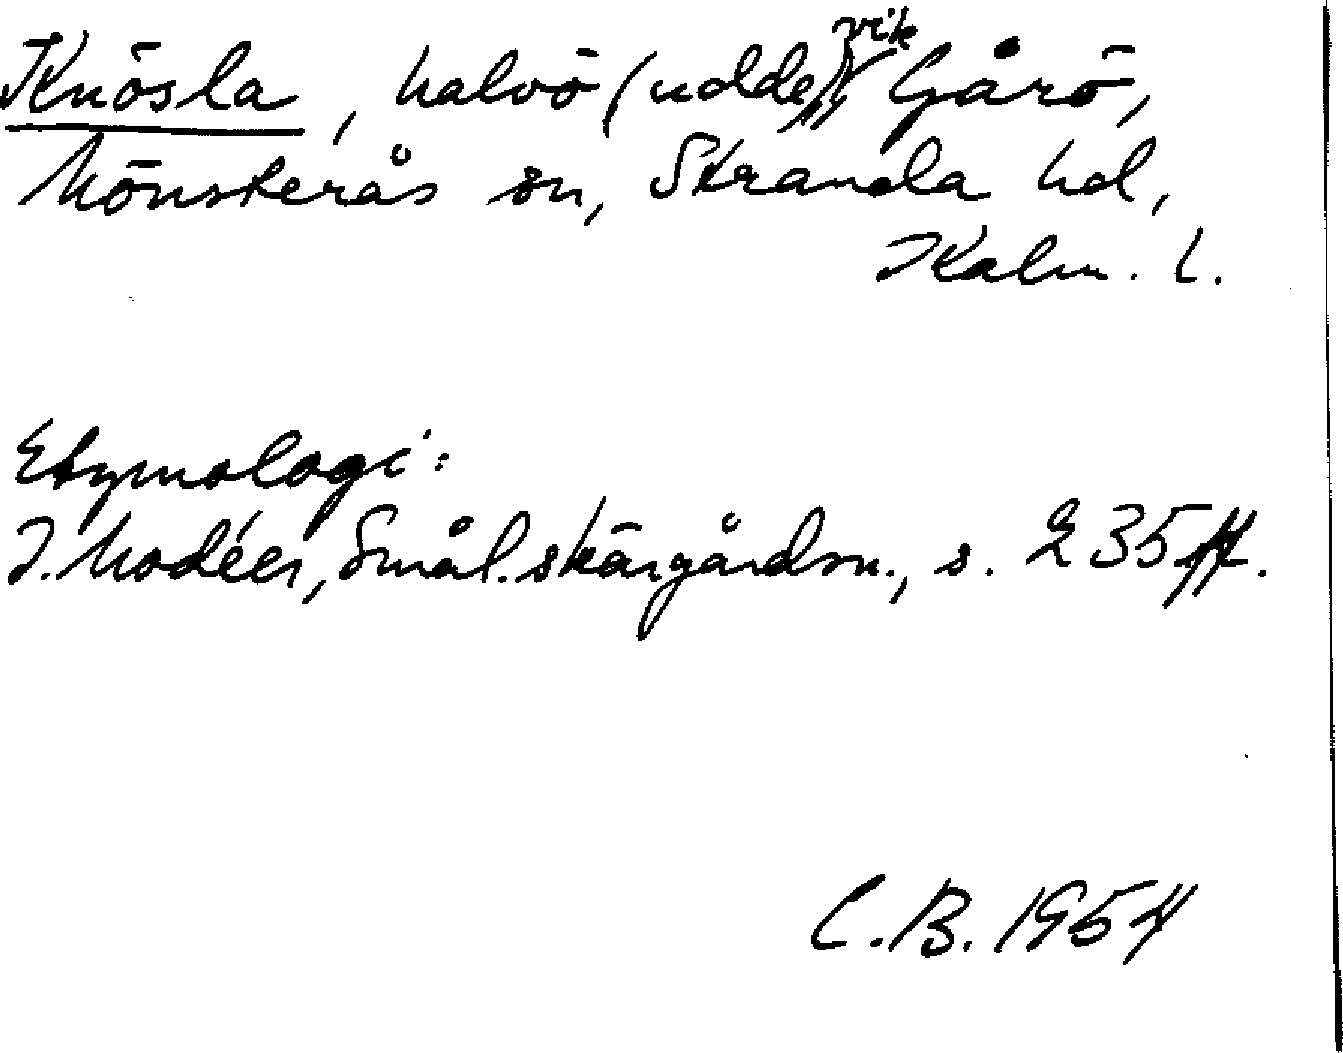 Knösla, halvö (udde) vik Gårö,
Mönsterås sn, Stranda hd,
Kalm. l.
Etymologi:
I. Modéer, Smål. skärgårdsn., s. 235 ff.
C.B. 1954